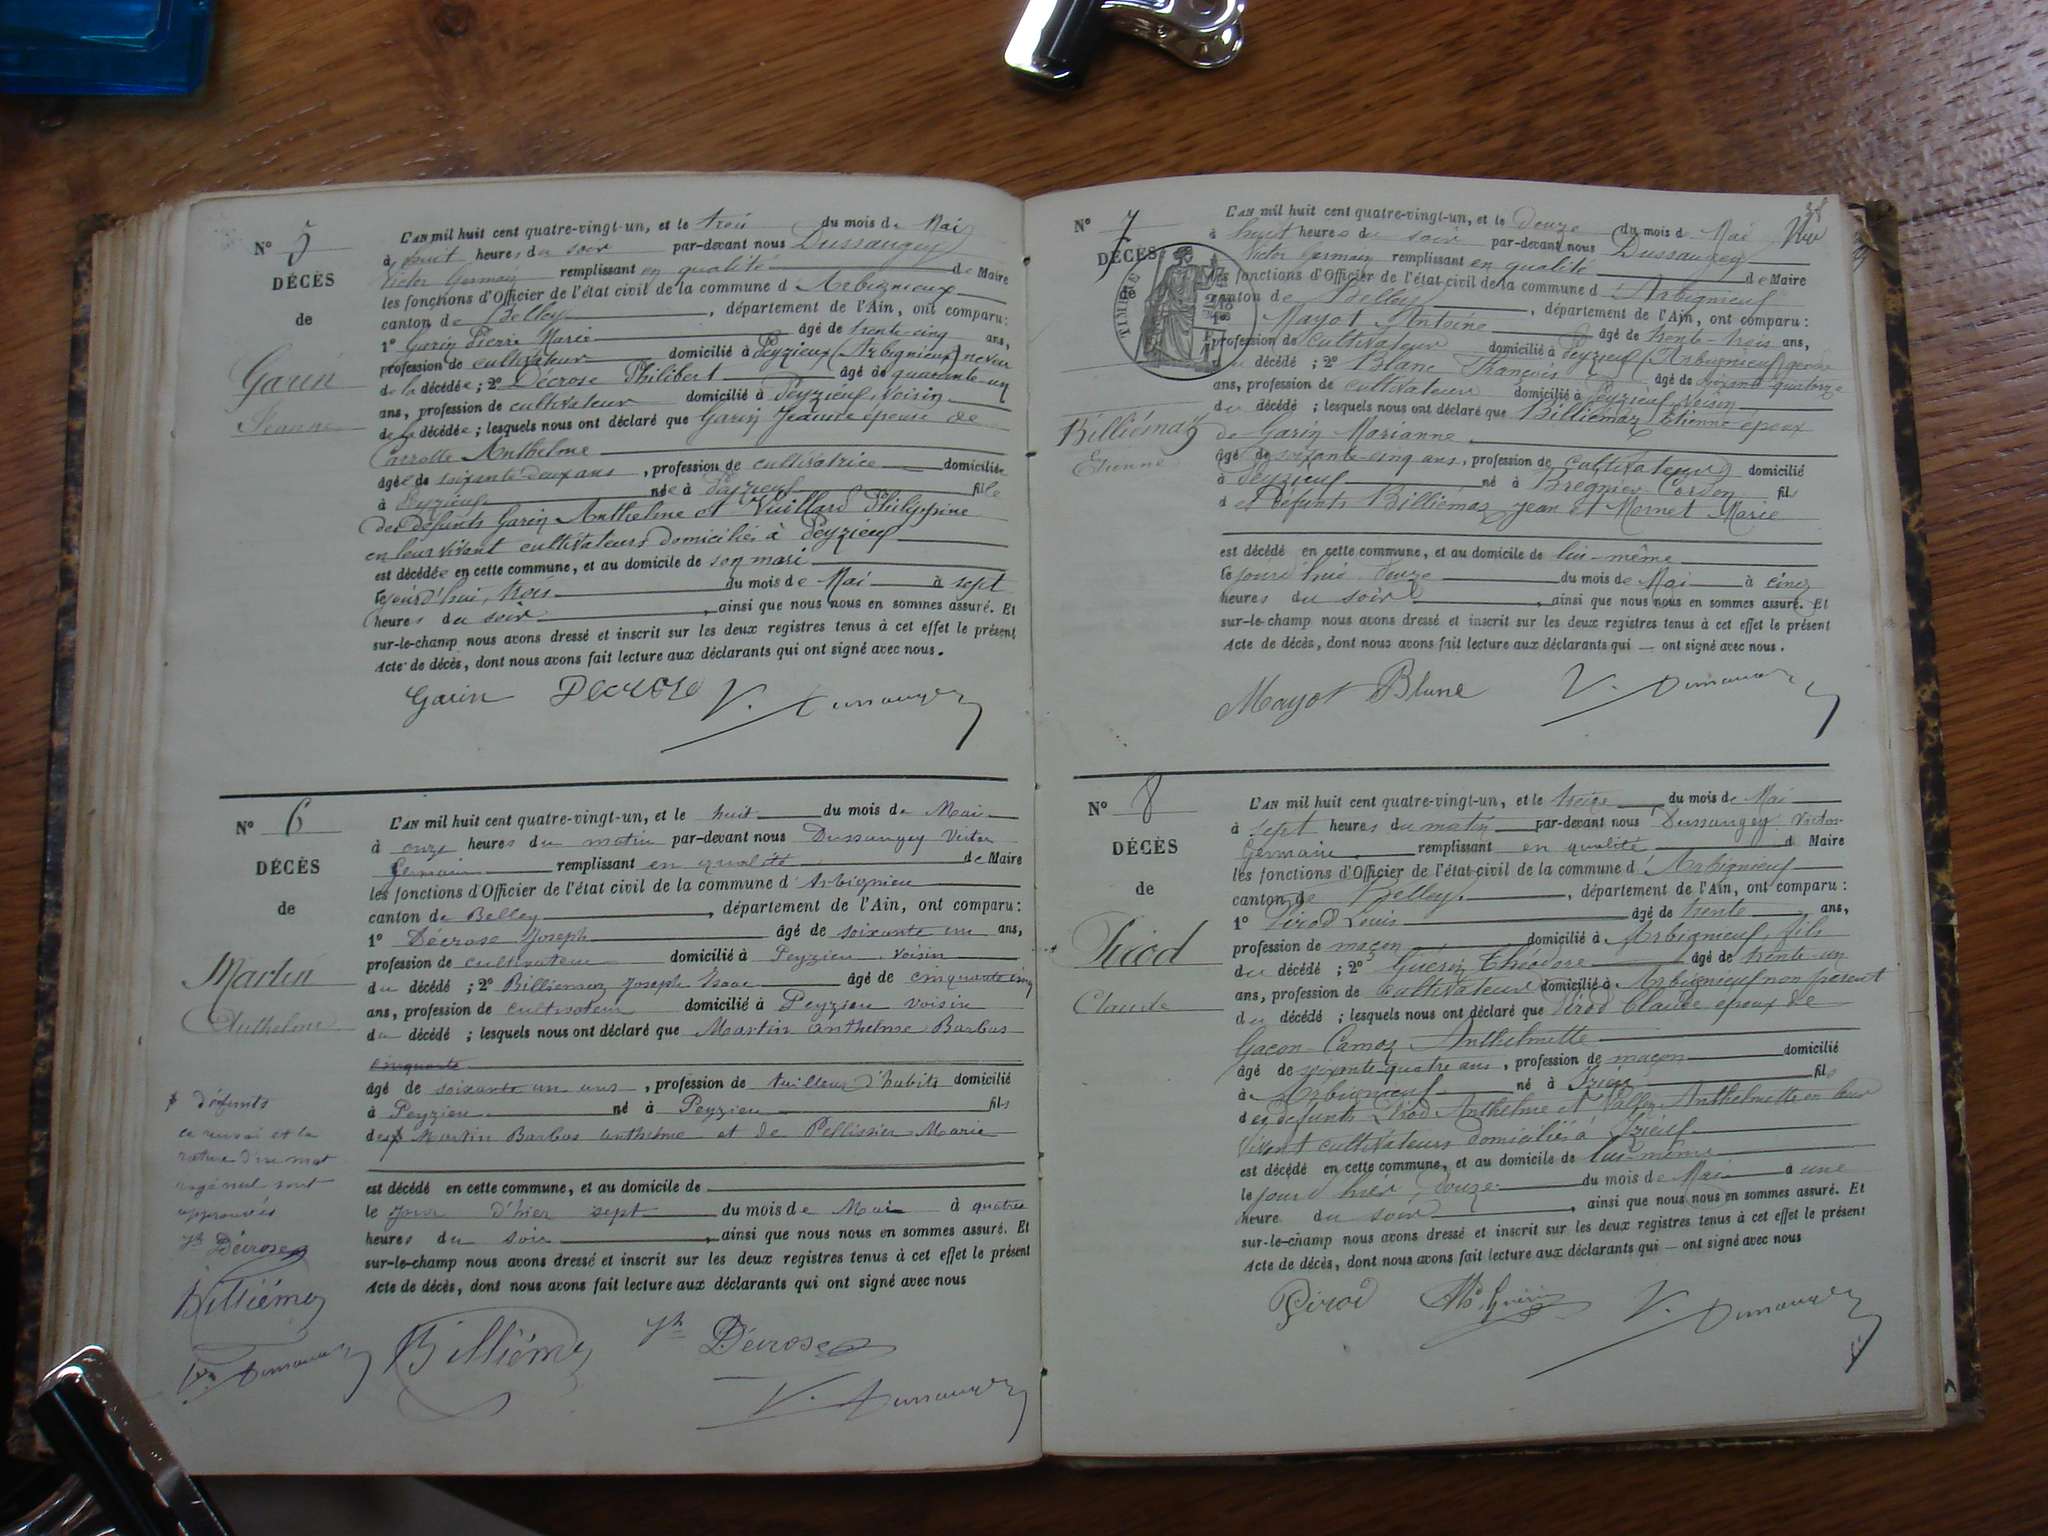 N° 5
DÉCÈS
de
Garin
Jeanne
L'AN mil huit cent quatre-vingt-un, et le trois du mois de Mai
à huit heures du soir par-devant nous Dussaugey
Victor Germain remplissant en qualité de Maire
les fonctions d'Officier de l'état civil de la commune d'Arbignieux
canton de Belley, département de l'Ain, ont comparu:
1° Garin Pierre Marie âgé de trente-cinq ans,
profession de cultivateur domicilié à Peyzieux (Arbignieux) neveu
de la décédée; 2° Décrose Philibert âgé de quarante-un
ans, profession de cultivateur domicilié à Peyzieu, voisin
de la décédée; lesquels nous ont déclaré que Garin Jeanne épouse de
Carrotte Anthelme
âgée de soixante-deux ans, profession de cultivatrice domiciliée
à Peyzieu née à Peyzieu fille
des défunts Garin Anthelme et Vuillard Philippine
en leur vivant cultivateurs domiciliés à Peyzieu
est décédée en cette commune, et au domicile de son mari
le jourd'hui, trois du mois de Mai à sept
heures du soir, ainsi que nous nous en sommes assuré. Et
sur-le-champ nous avons dressé et inscrit sur les deux registres tenus à cet effet le présent
Acte de décès, dont nous avons fait lecture aux déclarants qui ont signé avec nous.
Garin Decrose V. Dussaugey
N° 6
DÉCÈS
de
Martin
Anthelme
L'AN mil huit cent quatre-vingt-un, et le huit du mois de Mai
à onze heures du matin par-devant nous Dussaugey Victor
Germain remplissant en qualité de Maire
les fonctions d'Officier de l'état civil de la commune d'Arbignieu
canton de Belley, département de l'Ain, ont comparu:
1° Décrose Joseph âgé de soixante un ans,
profession de cultivateur domicilié à Peyzieu voisin
du décédé; 2° Billiemaz Joseph Isaac âgé de cinquante cinq
ans, profession de cultivateur domicilié à Peyzieu voisin
du décédé; lesquels nous ont déclaré que Martin Anthelme Barbas
cinquante
âgé de soixante un ans, profession de tailleur d'habits domicilié
à Peyzieu né à Peyzieu fils
des Martin Barbas Anthelme et de Pellissier Marie
est décédé en cette commune, et au domicile de
le jour d'hier sept du mois de Mai à quatre
heures du soir, ainsi que nous nous en sommes assuré. Et
sur-le-champ nous avons dressé et inscrit sur les deux registres tenus à cet effet le présent
Acte de décès, dont nous avons fait lecture aux déclarants qui ont signé avec nous
défunts
ce renvoi et la
rature d'un mot
rayé nul sont
approuvés
Jh Décrose
Billiémaz
V. Dussaugey
Billiémaz Jh Décrose
V. Dussaugey
38
N° 7
DÉCÈS
de
TIMBRE
Billiémaz
Etienne
L'AN mil huit cent quatre-vingt-un, et le douze du mois d Mai
à huit heures du soir par-devant nous Dussaugey
Victor Germain remplissant en qualité de Maire
les fonctions d'Officier de l'état civil de la commune d'Arbignieu
canton de Belley, département de l'Ain, ont comparu:
1° Mayot Antoine âgé de trente-trois ans,
profession de cultivateur domicilié à Peyzieu (Arbignieu) gendre
du décédé; 2° Blanc François âgé de soixante-quatorze
ans, profession de cultivateur domicilié à Peyzieu, voisin
du décédé; lesquels nous ont déclaré que Billiémaz Etienne époux
de Garin Marianne
âgé de soixante-cinq ans, profession de cultivateur domicilié
à Peyzieu né à Bregnier Cordon fils
des défunts Billiémaz Jean et Mornet Marie
est décédé en cette commune, et au domicile de lui-même
le jourd'hui douze du mois de Mai à cinq
heures du soir, ainsi que nous nous en sommes assuré. Et
sur-le-champ nous avons dressé et inscrit sur les deux registres tenus à cet effet le présent
Acte de décès, dont nous avons fait lecture aux déclarants qui — ont signé avec nous.
Mayot Blanc V. Dussaugey
N° 8
DÉCÈS
de
Pirod
Claude
L'AN mil huit cent quatre-vingt-un, et le treize du mois de Mai
à sept heures du matin par-devant nous Dussaugey Victor
Germain remplissant en qualité d Maire
les fonctions d'Officier de l'état civil de la commune d'Arbignieu
canton de Belley, département de l'Ain, ont comparu:
1° Pirod Louis âgé de trente ans,
profession de maçon domicilié à Arbignieu, fils
du décédé; 2° Guérin Théodore âgé de trente-un
ans, profession de cultivateur domicilié à Arbignieu non parent
du décédé; lesquels nous ont déclaré que Pirod Claude époux de
Gacon-Camoz Anthelmette
âgé de soixante-quatre ans, profession de maçon domicilié
à Arbignieu né à Izieu fils
des défunts Pirod Anthelme et Vallin Anthelmette en leur
vivant cultivateurs domiciliés à Izieu
est décédé en cette commune, et au domicile de lui-même
le jour d'hier, douze du mois de Mai à une
heure du soir, ainsi que nous nous en sommes assuré. Et
sur-le-champ nous avons dressé et inscrit sur les deux registres tenus à cet effet le présent
Acte de décès, dont nous avons fait lecture aux déclarants qui — ont signé avec nous
Pirod Th. Guérin V. Dussaugey